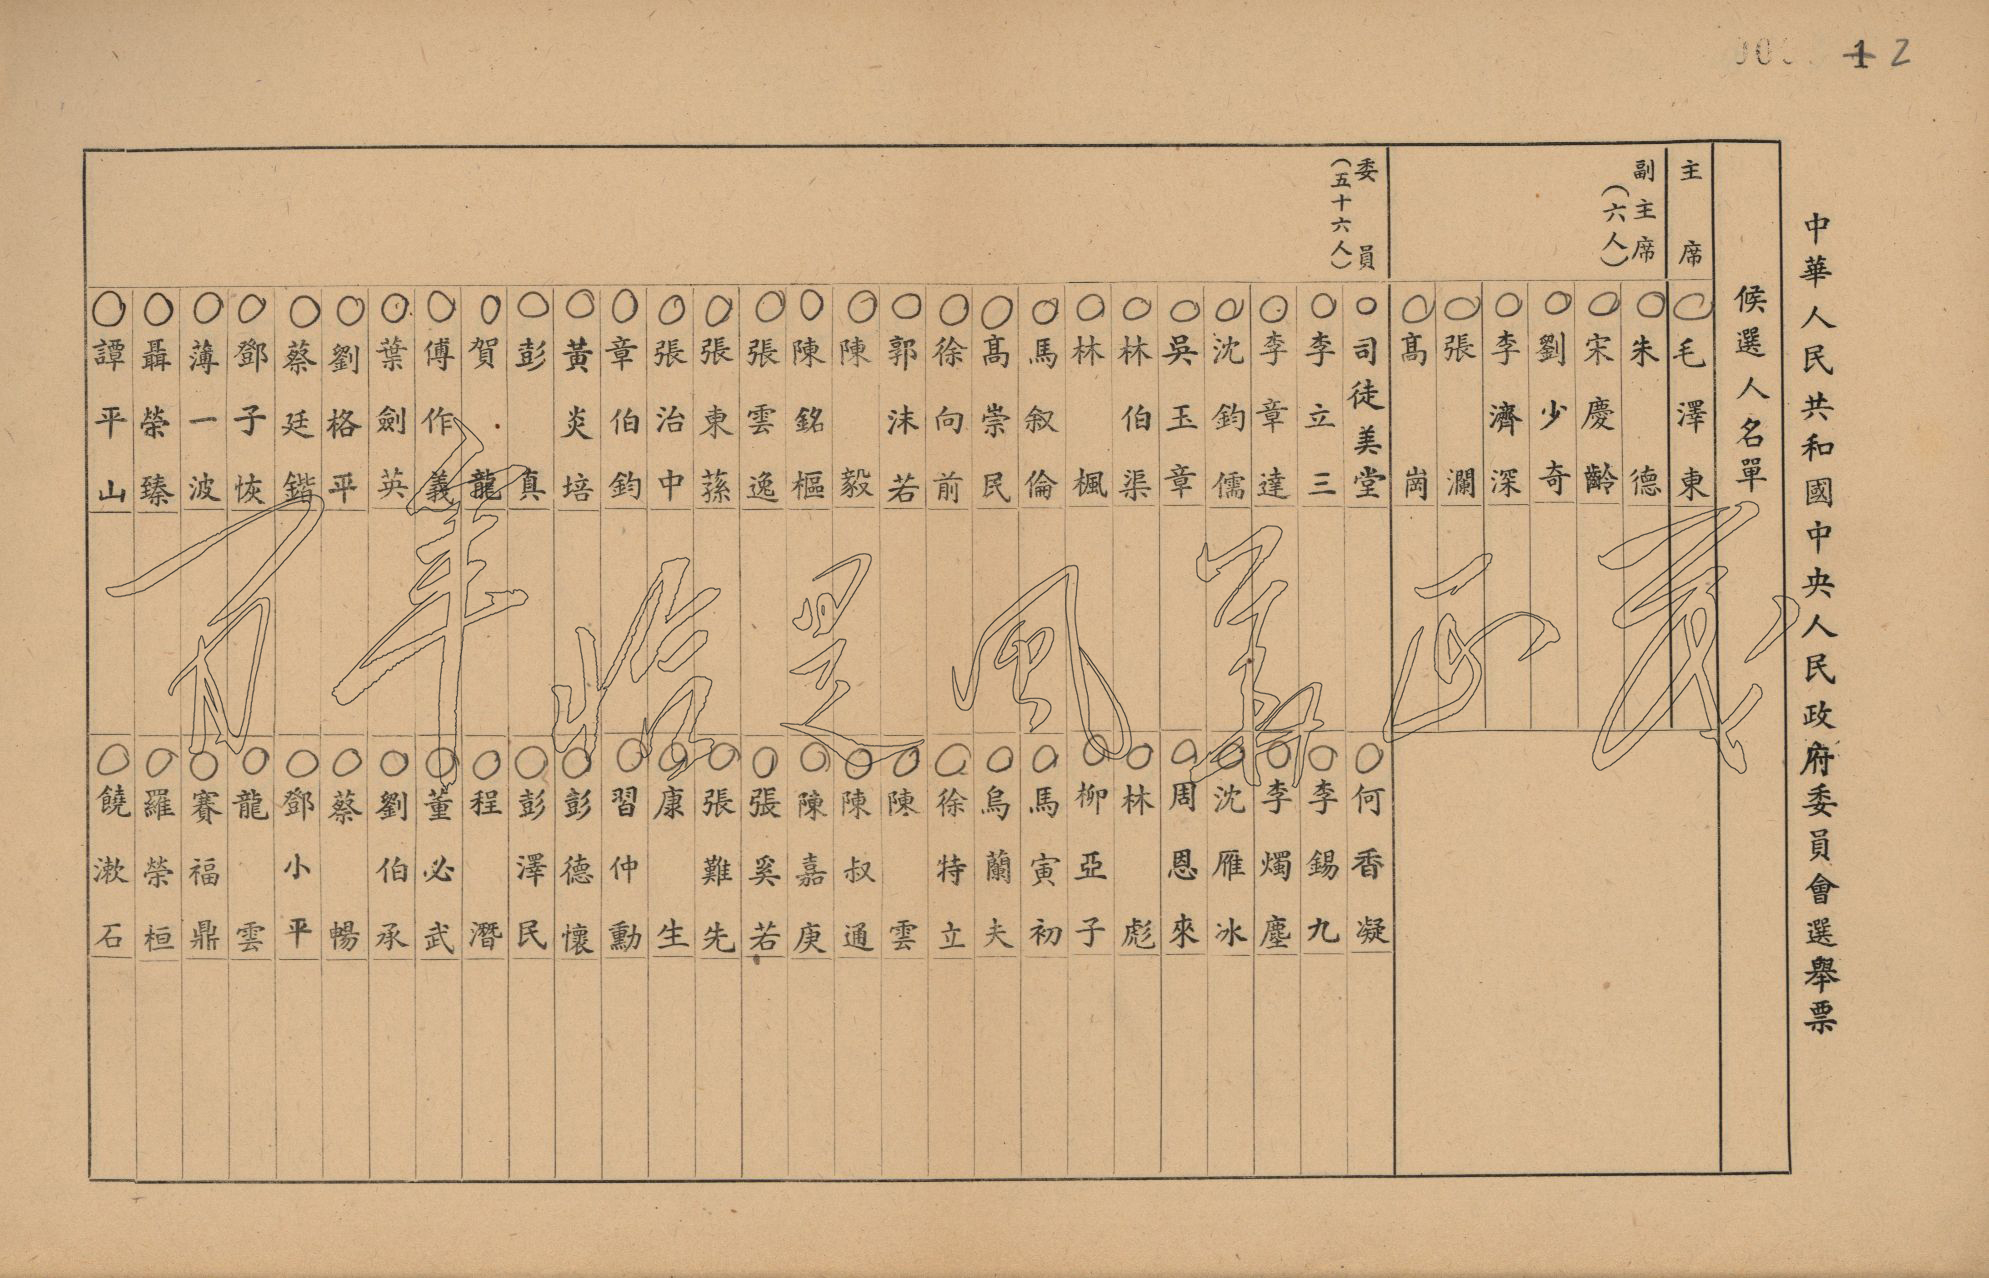 1 2
中華人民共和國中央人民政府委員會選舉票
候選人名單
主席
毛澤東
副主席
(六人)
朱德
宋慶齡
劉少奇
李濟深
張瀾
高崗
委員
(五十六人)
司徒美堂
李立三
李章達
沈鈞儒
吳玉章
林伯渠
林楓
馬叙倫
高崇民
徐向前
郭沫若
陳毅
陳銘樞
張雲逸
張東蓀
張治中
章伯鈞
黃炎培
彭真
賀龍
傅作義
葉劍英
劉格平
蔡廷鍇
鄧子恢
薄一波
聶榮臻
譚平山
何香凝
李錫九
李燭塵
沈雁冰
周恩來
林彪
柳亞子
馬寅初
烏蘭夫
徐特立
陳雲
陳叔通
陳嘉庚
張奚若
張難先
康生
習仲勳
彭德懷
彭澤民
程潛
董必武
劉伯承
蔡暢
鄧小平
龍雲
賽福鼎
羅榮桓
饒漱石